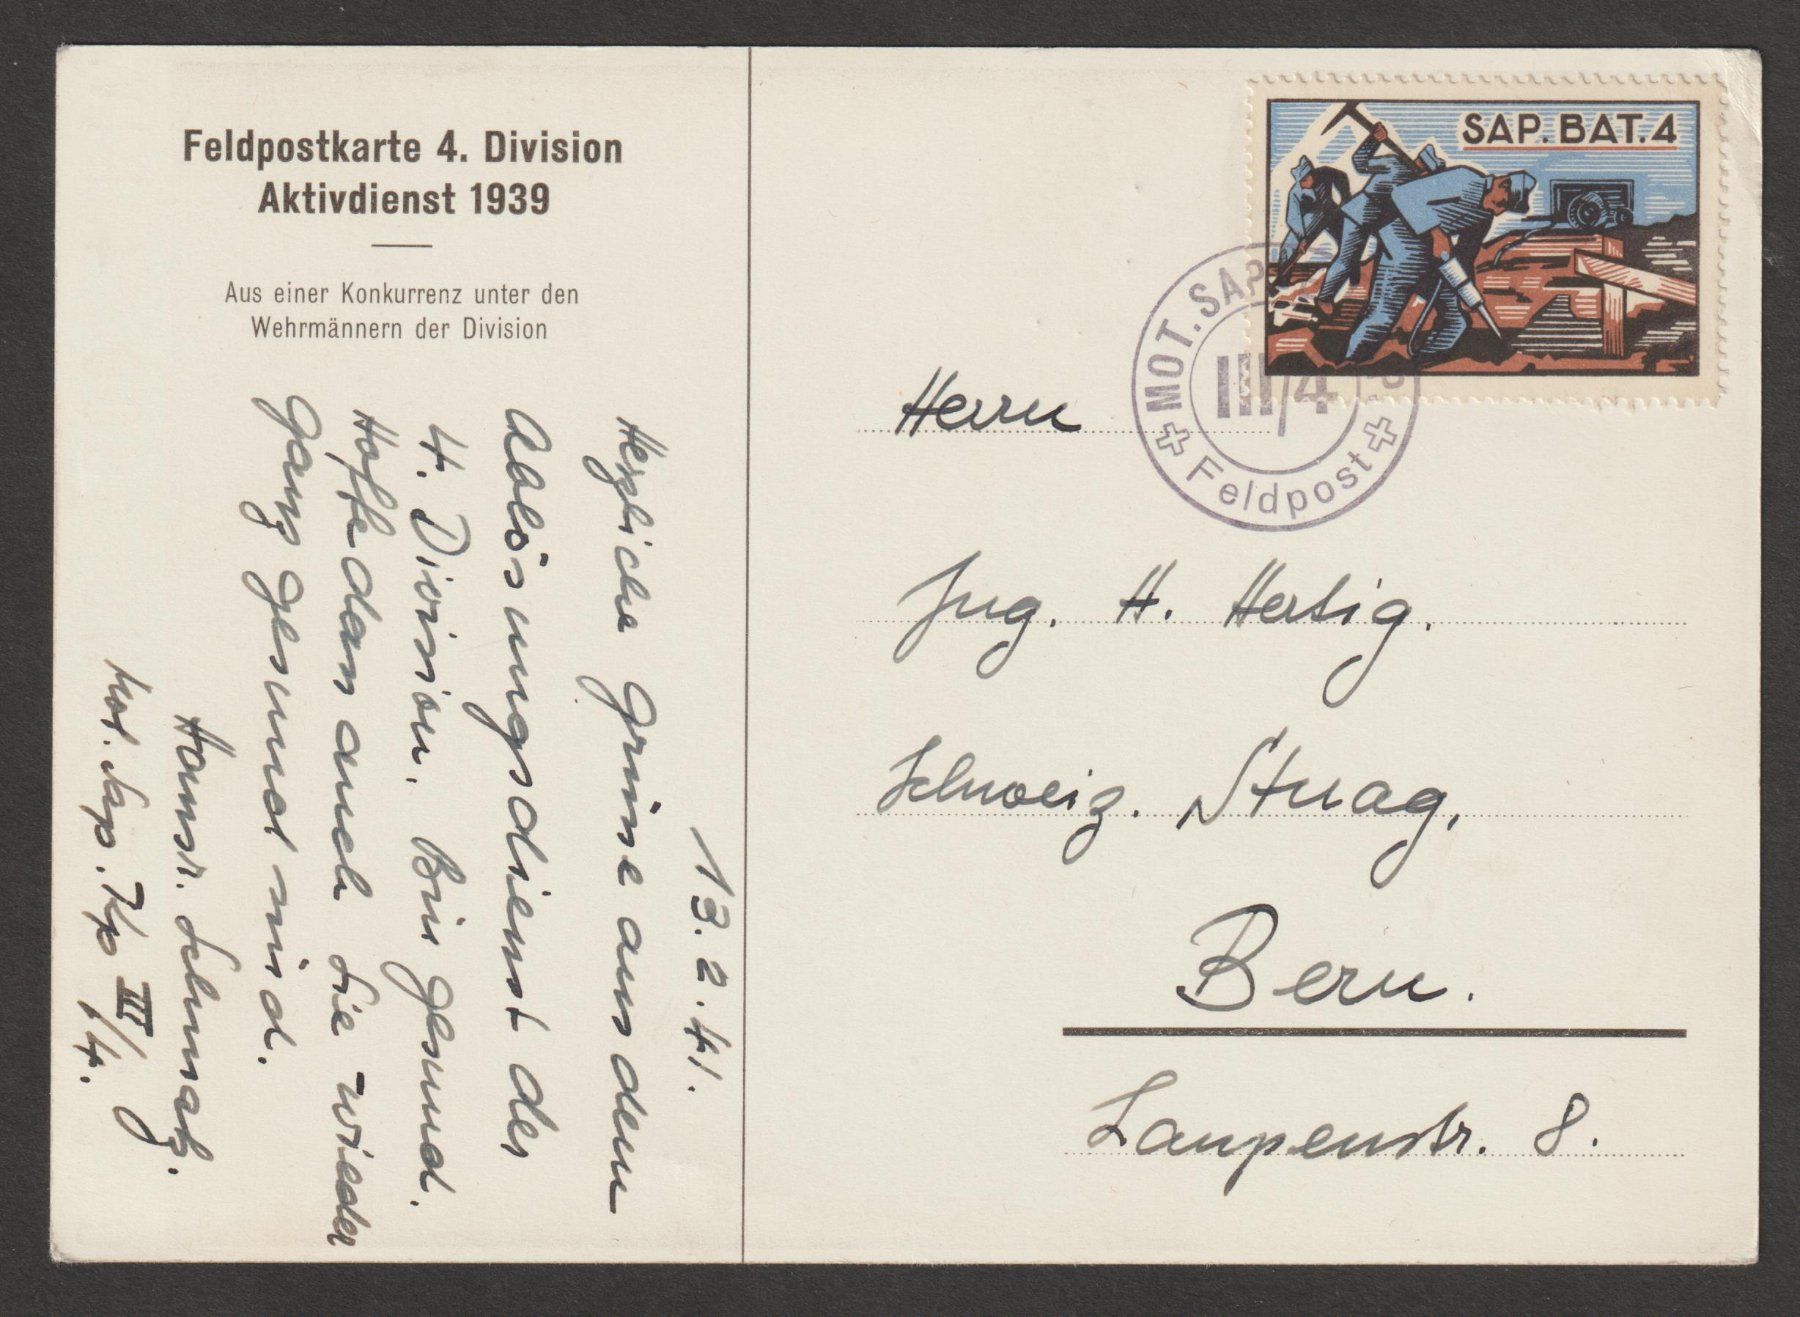 Feldpostkarte 4. Division
Aktivdienst 1939
Aus einer Konkurrenz unter den
Wehrmännern der Division
13.2.41.
Herzliche Grüsse aus dem
Ablösungsdienst der
4. Division. Bin gesund.
Hoffe dass auch Sie wieder
ganz gesund sind.
Hansr. Schmalz.
Mot. Sap. Kp III/4.
SAP. BAT. 4
MOT. SAP
III/4
Feldpost
Herrn
Ing. H. Hertig.
Schweiz. Stuag,
Bern.
Laupenstr. 8.